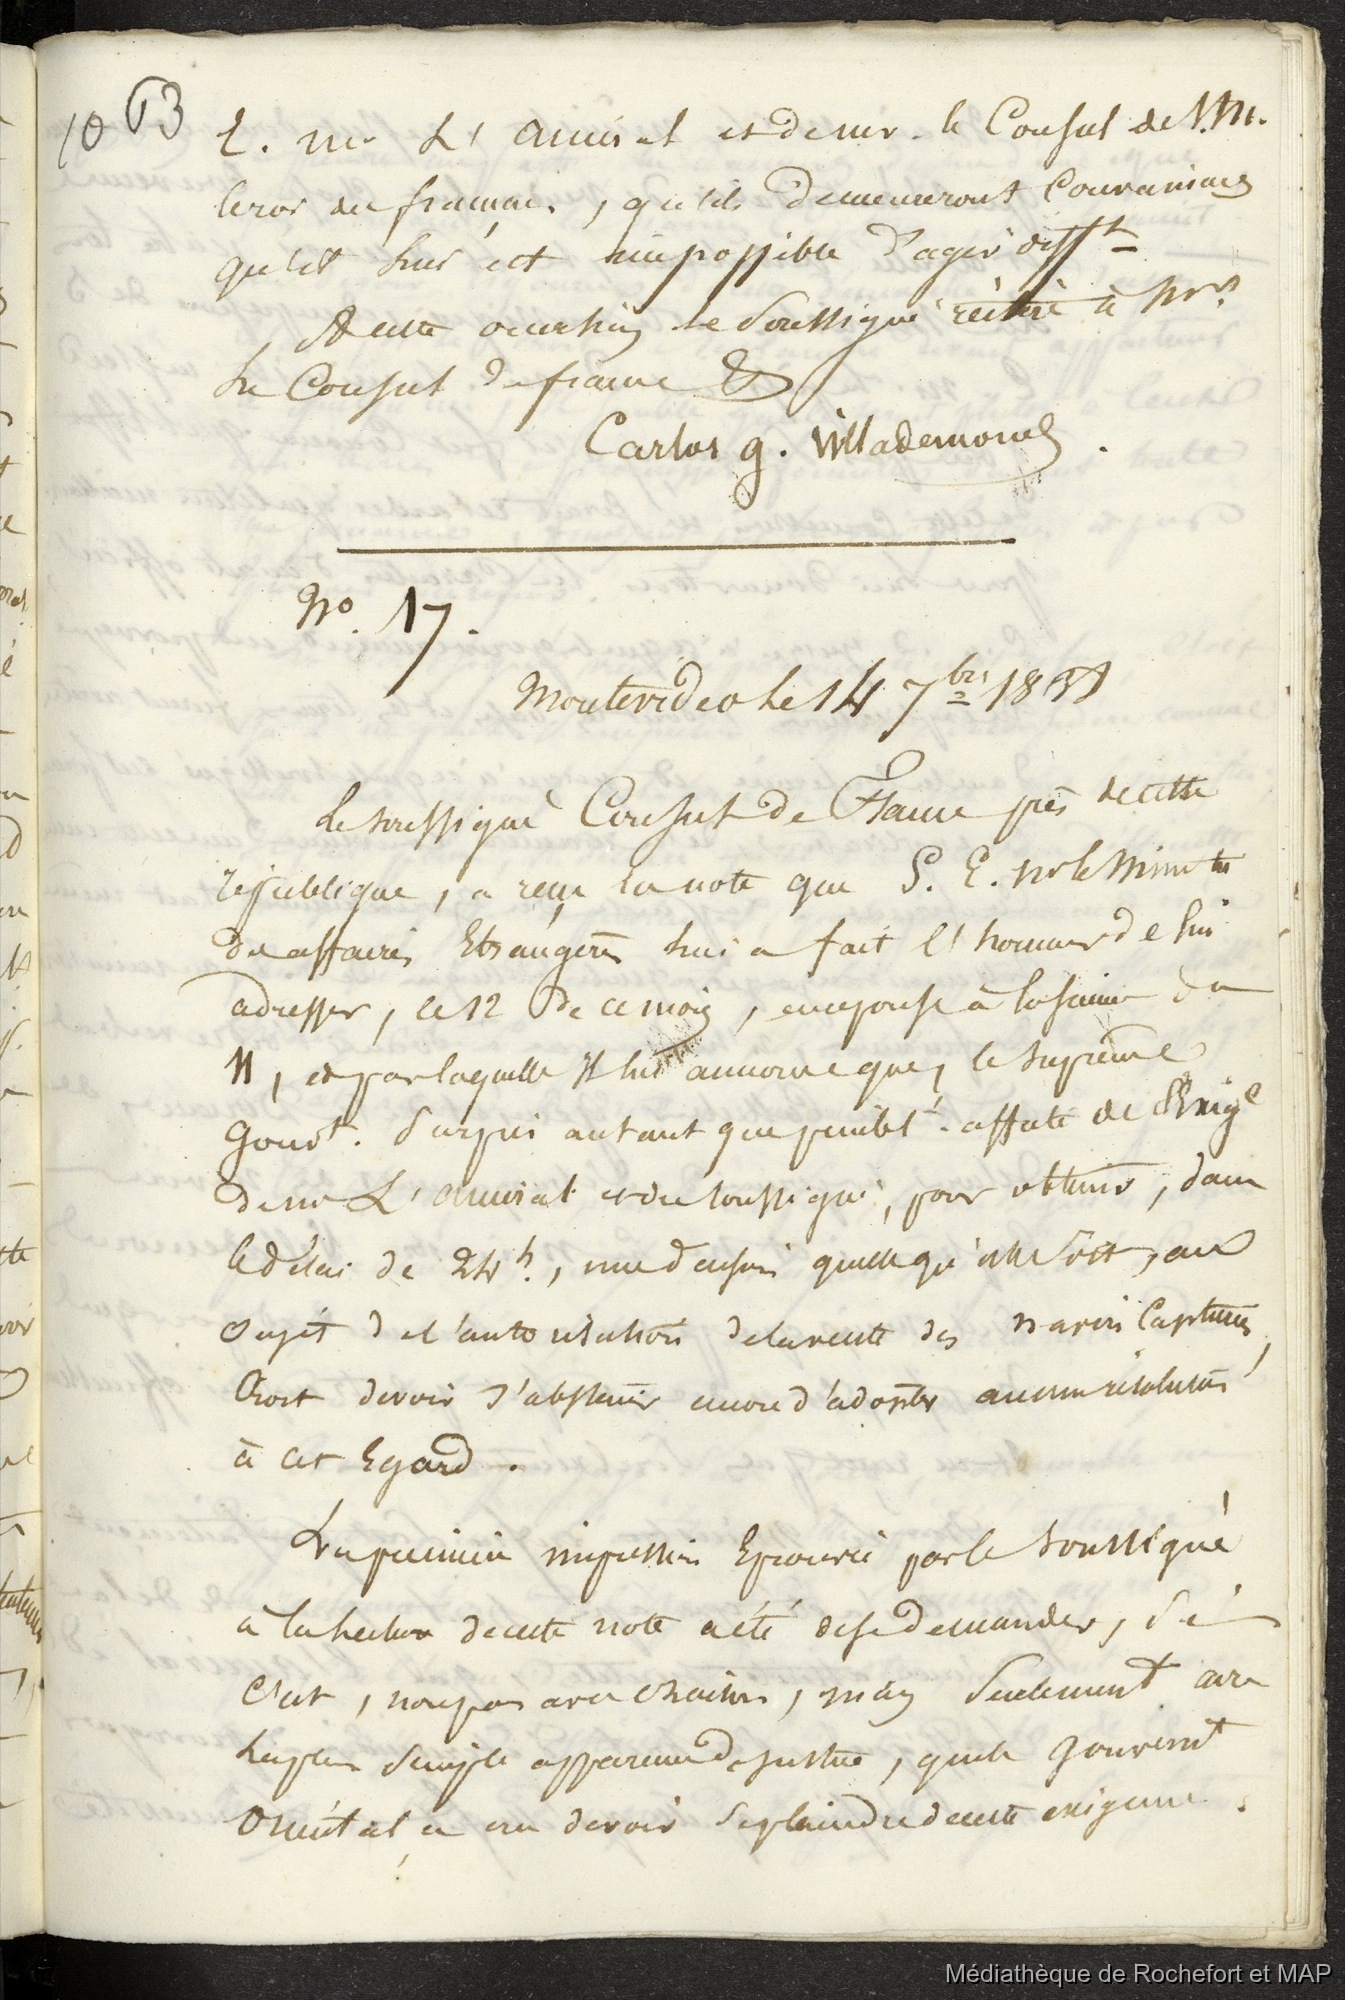 10 63
E. Mr L'Amiral et de mr. le Consul de S.M.
le roi des français, qu'ils demeureront convaincus
qu'il lui est impossible d'agir difft
A cette occasion le Soussigné réitère à Mr.
le Consul de france &
Carlos g. Villademoros.
No. 17.
Montevideo le 14 7bre 1838
Le soussigné Consul de France près de cette
république, a reçu la note que S. E. mr le Ministre
des affaires Etrangères lui a fait l'honneur de lui
adresser, le 12 de ce mois, en réponse à la sienne du
11, et par laquelle il lui annonce que, le suprême
Gouvt. Surpris autant que péniblt. affecté de l'Exige
de mr L'Amiral et du soussigné, pour obtenir, dans
le délai de 24 h., une décision quelle qu'elle soit, au
sujet de l'autorisation de la vente des navires Capturés,
Croit devoir s'abstenir encore d'adopter aucune résolution
à cet Egard.
La première impression Eprouvée par le soussigné
à la lecture de cette note a été de se demander, si
c'est, non pas avec raison, mais seulement avec
la plus simple apparence de justice, que le Gouvernt
Oriental a cru devoir se plaindre de cette exigence.
Médiathèque de Rochefort et MAP